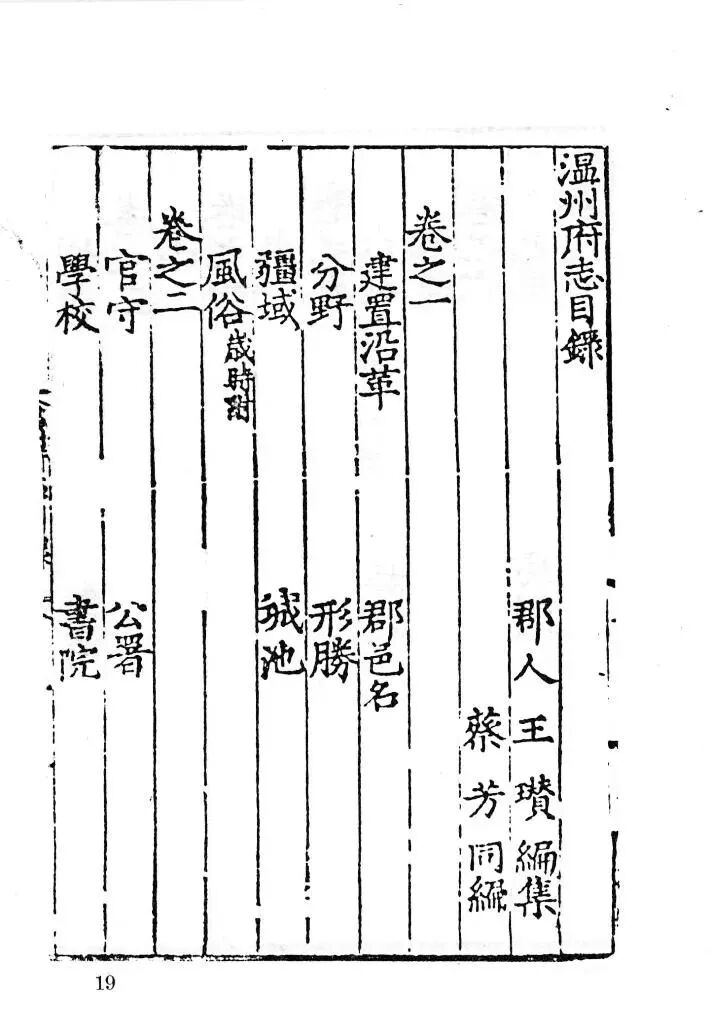 温州府志目錄
郡人王瓚編集
蔡芳同編
卷之一
建置沿革 郡邑名
分野 形勝
疆域 城池
風俗歲時附
卷之二
官守 公署
學校 書院
19